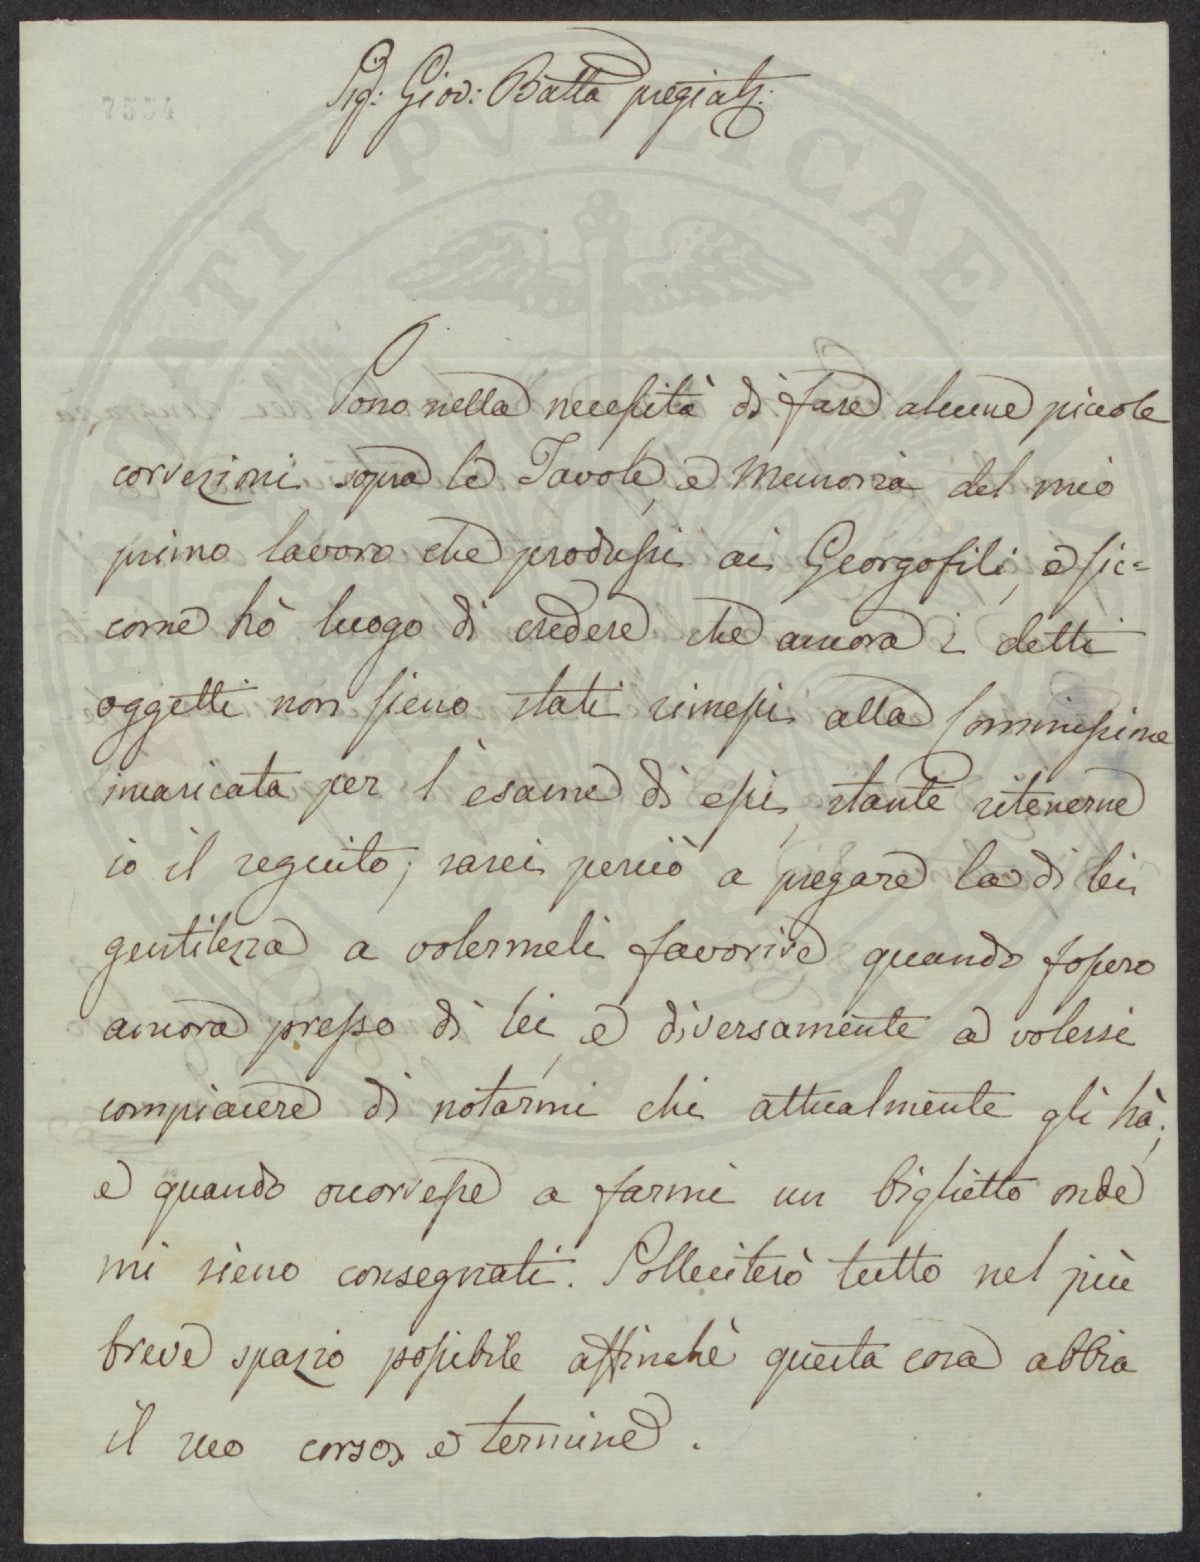 Sig: Giov: Batta pregiatᵐ:
Sono nella necessità di fare alcune piccole
correzioni sopra le Tavole, e Memoria del mio
primo lavoro che produssi ai Georgofili, e sic=
come hò luogo di credere che ancora i detti
oggetti non sieno stati rimessi alla Commissione
incaricata per l'esame di essi, stante ritenerne
io il seguito; sarei perciò a pregare la di lei
gentilezza a volermeli favorire quando fossero
ancora presso di lei, e diversamente a volersi
compiacere di notarmi chi attualmente gli hà;
e quando occorresse a farmi un biglietto onde
mi sieno consegnati. Solleciterò tutto nel più
breve spazio possibile affinchè questa cosa abbia
il suo corso, e termine.